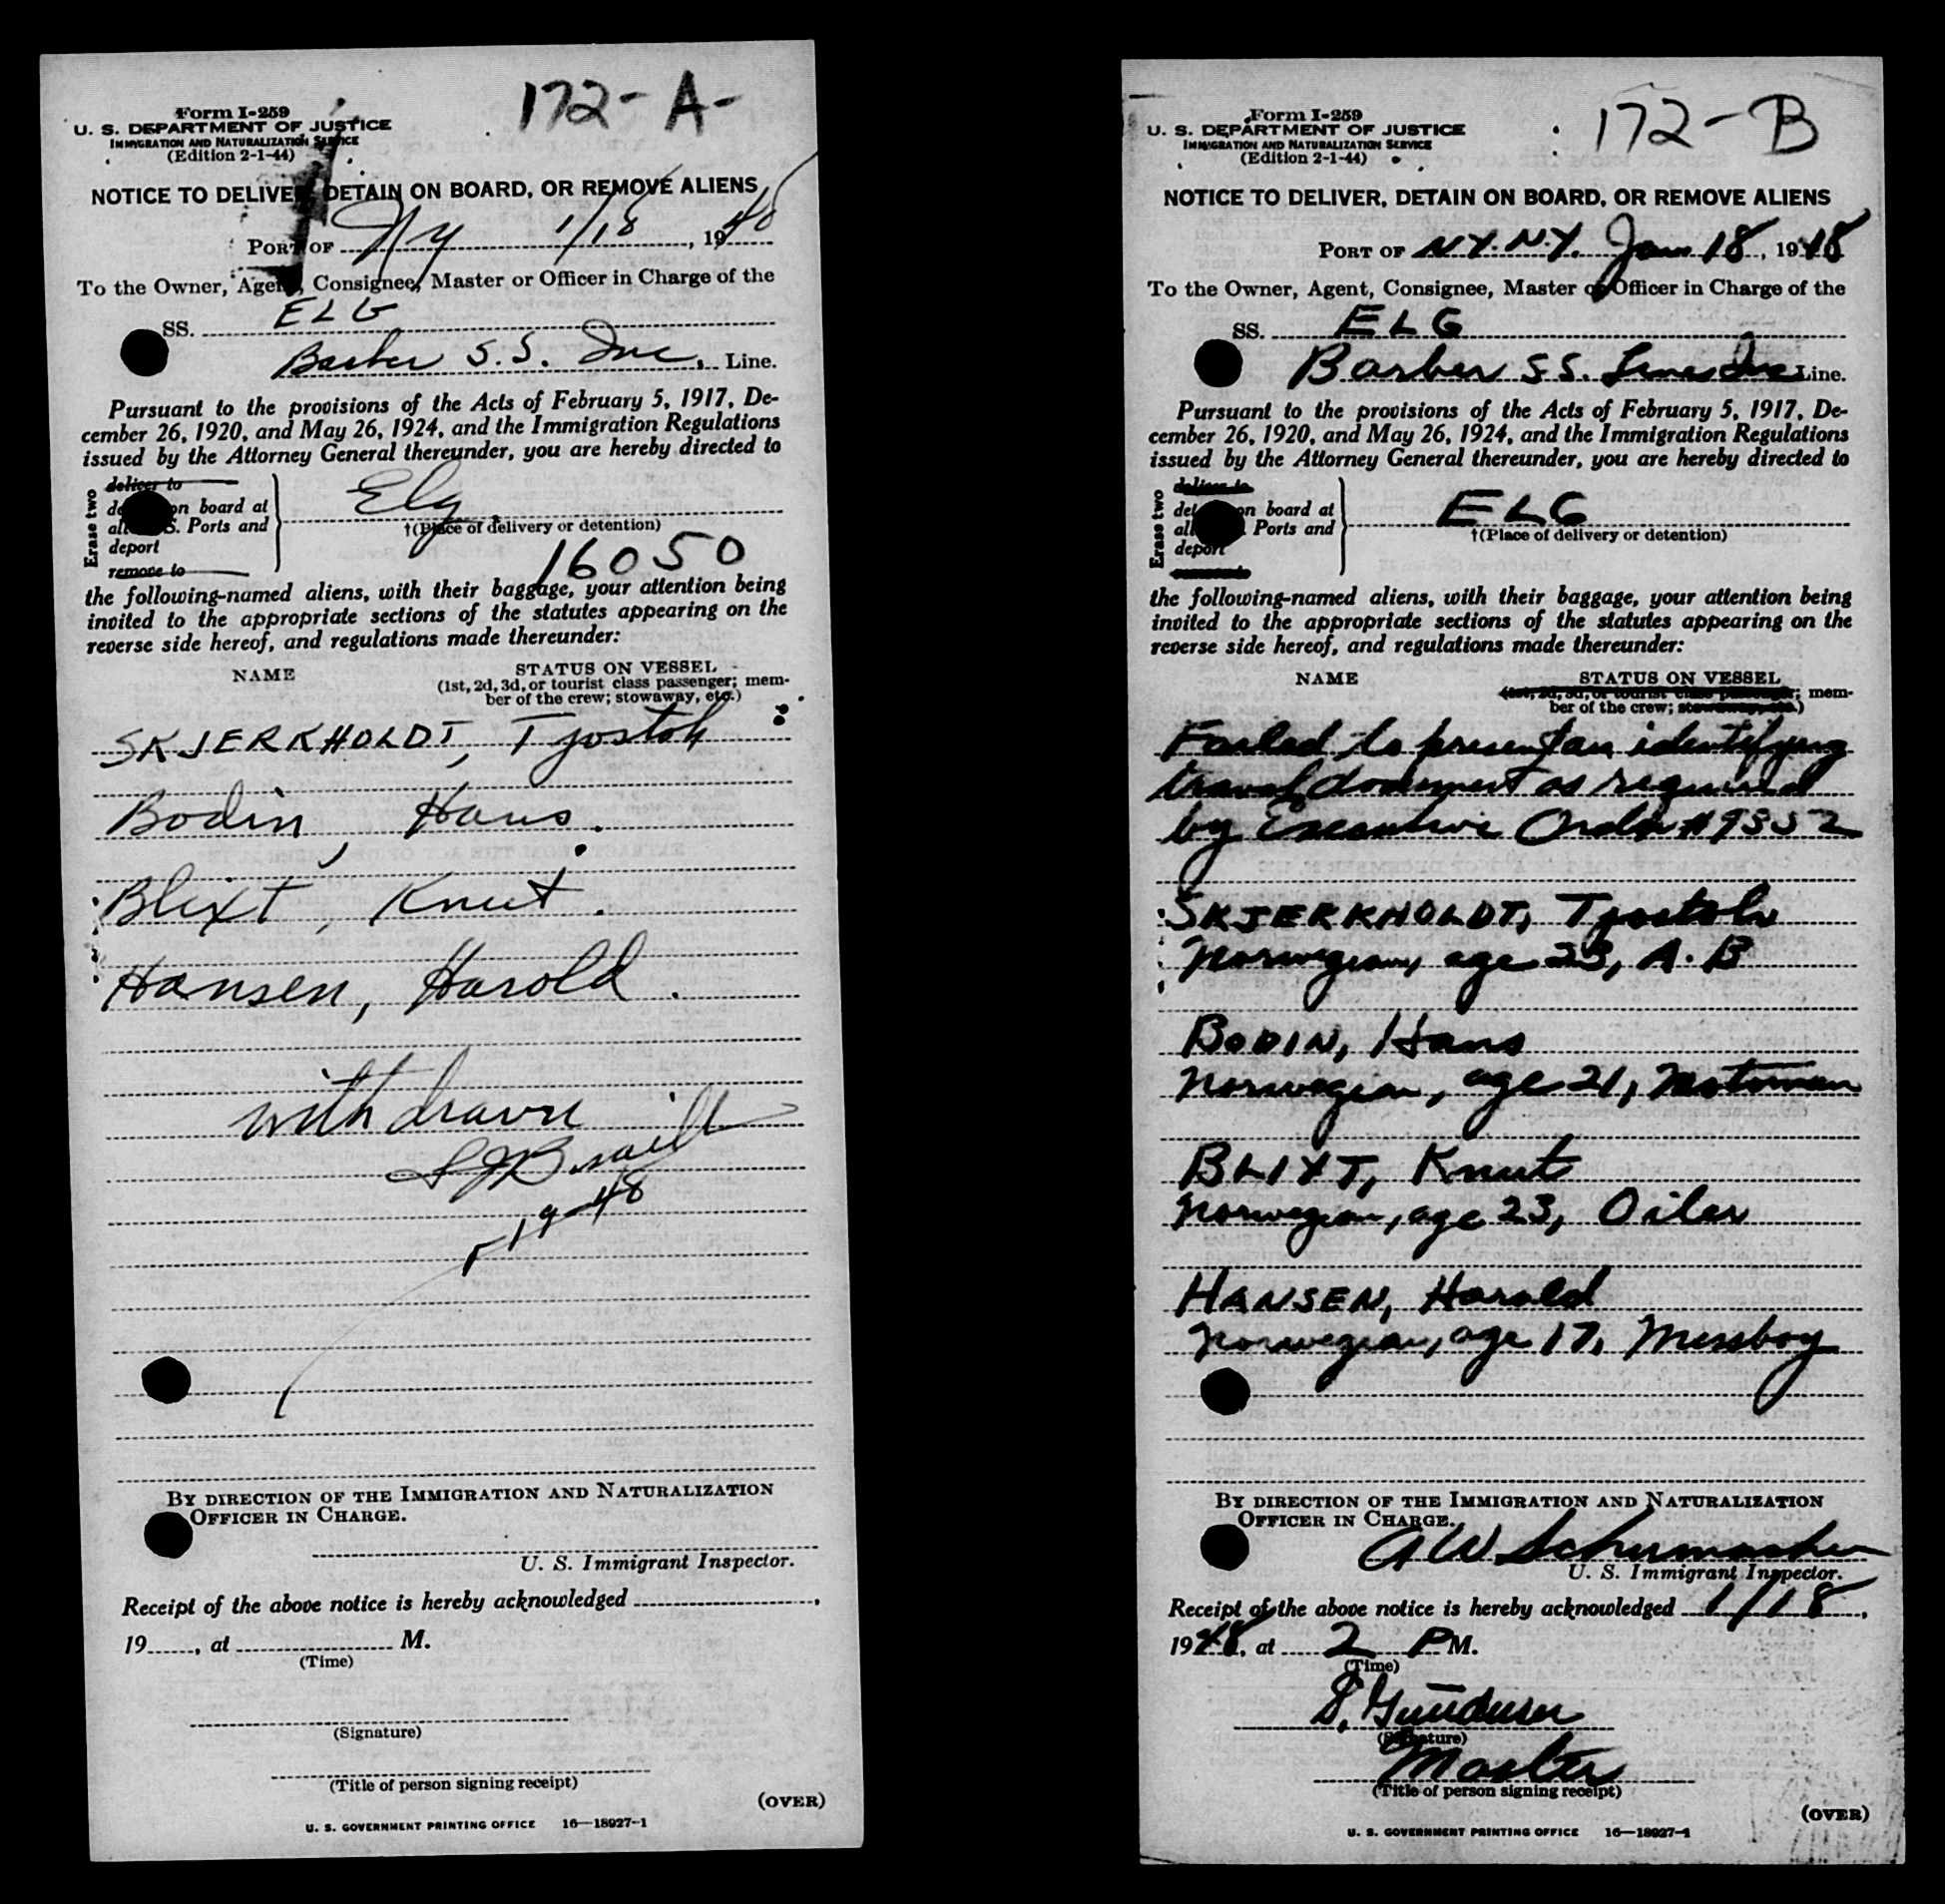 172-A-
Form I-259
U. S. DEPARTMENT OF JUSTICE
IMMIGRATION AND NATURALIZATION SERVICE
(Edition 2-1-44)
NOTICE TO DELIVER, DETAIN ON BOARD, OR REMOVE ALIENS
PORT OF NY 1/18, 1948
To the Owner, Agent, Consignee, Master or Officer in Charge of the
SS. ELG
Barber S.S. Inc. Line.
Pursuant to the provisions of the Acts of February 5, 1917, De-
cember 26, 1920, and May 26, 1924, and the Immigration Regulations
issued by the Attorney General thereunder, you are hereby directed to
Erase two
deliver to
on board at
S. Ports and
deport
remove to
Elg
†(Place of delivery or detention)
16050
the following-named aliens, with their baggage, your attention being
invited to the appropriate sections of the statutes appearing on the
reverse side hereof, and regulations made thereunder:
NAME STATUS ON VESSEL
(1st, 2d, 3d, or tourist class passenger; mem-
ber of the crew; stowaway, etc.)
SKJERKHOLDT, Tjostolv
Bodin, Hans.
Blixt, Knut.
Hansen, Harold.
withdrawn
1-19-48
BY DIRECTION OF THE IMMIGRATION AND NATURALIZATION
OFFICER IN CHARGE.
U. S. Immigrant Inspector.
Receipt of the above notice is hereby acknowledged ,
19 , at M.
(Time)
(Signature)
(Title of person signing receipt)
(OVER)
U. S. GOVERNMENT PRINTING OFFICE 16—18927-1
172-B
Form I-259
U. S. DEPARTMENT OF JUSTICE
IMMIGRATION AND NATURALIZATION SERVICE
(Edition 2-1-44)
NOTICE TO DELIVER, DETAIN ON BOARD, OR REMOVE ALIENS
PORT OF N.Y. N.Y. Jan 18, 1948
To the Owner, Agent, Consignee, Master or Officer in Charge of the
SS. ELG
Barber SS. Lines Inc Line.
Pursuant to the provisions of the Acts of February 5, 1917, De-
cember 26, 1920, and May 26, 1924, and the Immigration Regulations
issued by the Attorney General thereunder, you are hereby directed to
Erase two
deliver to
on board at
Ports and
deport
remove to
ELG
†(Place of delivery or detention)
the following-named aliens, with their baggage, your attention being
invited to the appropriate sections of the statutes appearing on the
reverse side hereof, and regulations made thereunder:
NAME STATUS ON VESSEL
(1st, 2d, 3d, or tourist class passenger; mem-
ber of the crew; stowaway, etc.)
Failed to present an identifying
travel document as required
by Executive Order #9352
SKJERKHOLDT, Tjostolv
Norwegian, age 23, A.B
BODIN, Hans
Norwegian, age 21, Motorman
BLIXT, Knut
Norwegian, age 23, Oiler
HANSEN, Harald
Norwegian, age 17, Messboy
BY DIRECTION OF THE IMMIGRATION AND NATURALIZATION
OFFICER IN CHARGE.
A W Schumacher
U. S. Immigrant Inspector.
Receipt of the above notice is hereby acknowledged 1/18,
1948, at 2 PM.
(Time)
(Signature)
Master
(Title of person signing receipt)
(OVER)
U. S. GOVERNMENT PRINTING OFFICE 16—18927-1